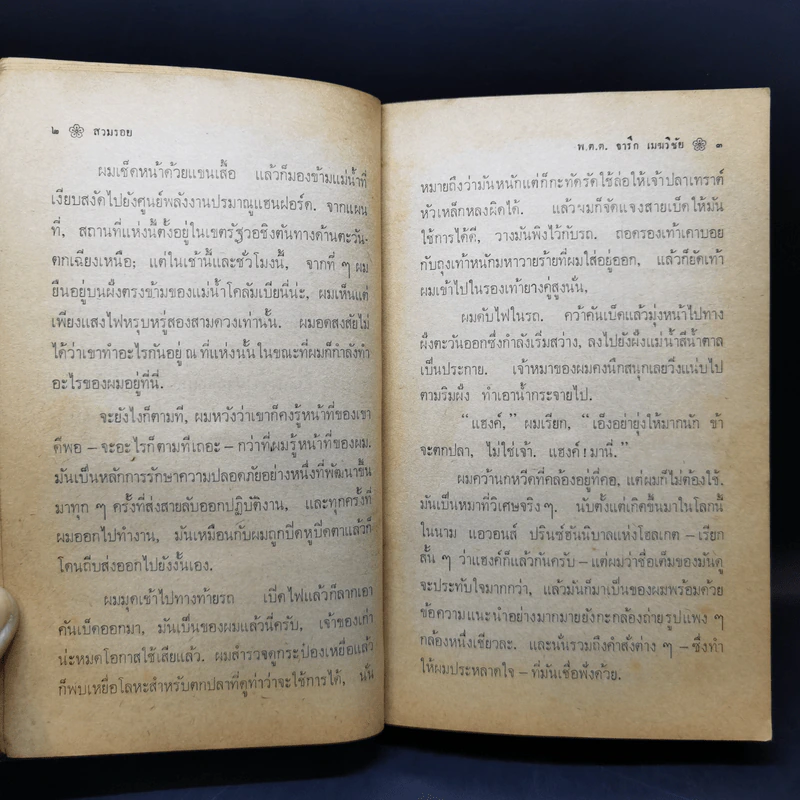 ๒ สวมรอย
ผมเช็ดหน้าด้วยแขนเสื้อ แล้วก็มองข้ามแม่น้ำที่
เงียบสงัดไปยังศูนย์พลังงานปรมาณูแฮนฟอร์ด. จากแผน
ที่, สถานที่แห่งนี้ตั้งอยู่ในเขตรัฐวอชิงตันทางด้านตะวัน-
ตกเฉียงเหนือ; แต่ในเช้านี้และชั่วโมงนี้, จากที่ ๆ ผม
ยืนอยู่บนฝั่งตรงข้ามของแม่น้ำโคลัมเบียนี่น่ะ, ผมเห็นแต่
เพียงแสงไฟหรุบหรู่สองสามดวงเท่านั้น. ผมอดสงสัยไม่
ได้ว่าเขาทำอะไรกันอยู่ ณ ที่แห่งนั้นในขณะที่ผมก็กำลังทำ
อะไรของผมอยู่ที่นี่.
จะยังไงก็ตามที, ผมหวังว่าเขาก็คงรู้หน้าที่ของเขา
ดีพอ – จะอะไรก็ตามที่เถอะ – กว่าที่ผมรู้หน้าที่ของผม.
มันเป็นหลักการรักษาความปลอดภัยอย่างหนึ่งที่พัฒนาขึ้น
มาทุก ๆ ครั้งที่ส่งสายลับออกปฏิบัติงาน, และทุกครั้งที่
ผมออกไปทำงาน, มันเหมือนกับผมถูกปิดหูปิดตาแล้วก็
โดนถีบส่งออกไปยังงั้นเอง.
ผมมุดเข้าไปทางท้ายรถ เปิดไฟแล้วก็ลากเอา
คันเบ็ดออกมา, มันเป็นของผมแล้วนี่ครับ, เจ้าของเก่า
น่ะหมดโอกาสใช้เสียแล้ว. ผมสำรวจดูกระป๋องเหยื่อแล้ว
ก็พบเหยื่อโลหะสำหรับตกปลาที่ดูท่าว่าจะใช้การได้, นั่น
พ.ต.ต. จารึก เมฆวิชัย ๓
หมายถึงว่ามันหนักแต่ก็กะทัดรัดใช้ล่อให้เจ้าปลาเทราต์
หัวเหล็กหลงผิดได้. แล้วผมก็จัดแจงสายเบ็ดให้มัน
ใช้การได้ดี, วางมันพิงไว้กับรถ. ถอดรองเท้าเคาบอย
กับถุงเท้าหนักมหาวายร้ายที่ผมใส่อยู่ออก, แล้วก็ยัดเท้า
ผมเข้าไปในรองเท้ายางคู่สูงนั่น.
ผมดับไฟในรถ. คว้าคันเบ็ดแล้วมุ่งหน้าไปทาง
ฝั่งตะวันออกซึ่งกำลังเริ่มสว่าง, ลงไปยังฝั่งแม่น้ำสีน้ำตาล
เป็นประกาย. เจ้าหมาของผมคงนึกสนุกเลยวิ่งแน่บไป
ตามริมฝั่ง ทำเอาน้ำกระจายไป.
“แฮงค์,” ผมเรียก, “เอ็งอย่ายุ่งให้มากนัก ข้า
จะตกปลา, ไม่ใช่เจ้า. แฮงค์ ! มานี่.”
ผมคว้านกหวีดที่คล้องอยู่ที่คอ, แต่ผมก็ไม่ต้องใช้.
มันเป็นหมาที่วิเศษจริง ๆ. นับตั้งแต่เกิดขึ้นมาในโลกนี้
ในนาม แอวอนส์ ปรินซ์ฮันนิบาลแห่งโฮลเกต – เรียก
สั้น ๆ ว่าแฮงค์ก็แล้วกันครับ – แต่ผมว่าชื่อเต็มของมันดู
จะประทับใจมากกว่า, แล้วมันก็มาเป็นของผมพร้อมด้วย
ข้อความแนะนำอย่างมากมายยังกะกล้องถ่ายรูปแพง ๆ
กล้องหนึ่งเชียวละ. และนั่นรวมถึงคำสั่งต่าง ๆ – ซึ่งทำ
ให้ผมประหลาดใจ – ที่มันเชื่อฟังด้วย.